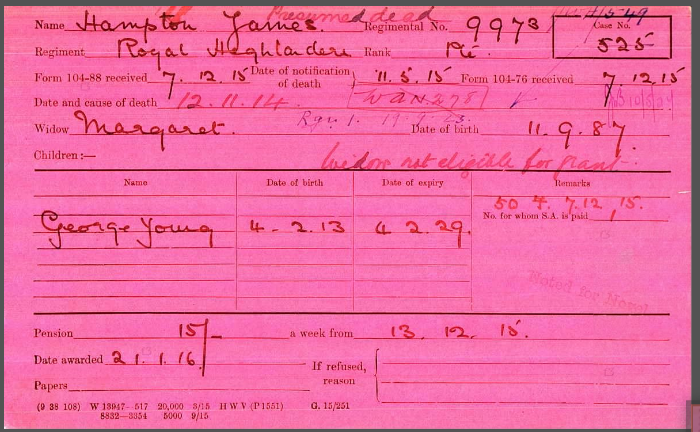 Presumed dead
Name Hampton James. Regimental No. 9973 Case No. 525
Regiment Royal Highlanders Rank Pte.
Form 104-88 received 7.12.15 Date of notification of death 11.5.15 Form 104-76 received 7.12.15
Date and cause of death 12.11.14.
Widow Margaret. Date of birth 11.9.87
Children:— Widow not eligible for grant
Name Date of birth Date of expiry Remarks
50 F. 7.12.15.
No. for whom S.A. is paid 1
George Young 4-2.13 4 2.29.
Noted for
Pension 15/- a week from 13. 12. 15.
Date awarded 21.1.16. If refused, reason
Papers
(9 38 108) W 13947—517 20,000 3/15 H W V (P 1551) G. 15/251
8832—3354 5000 9/15